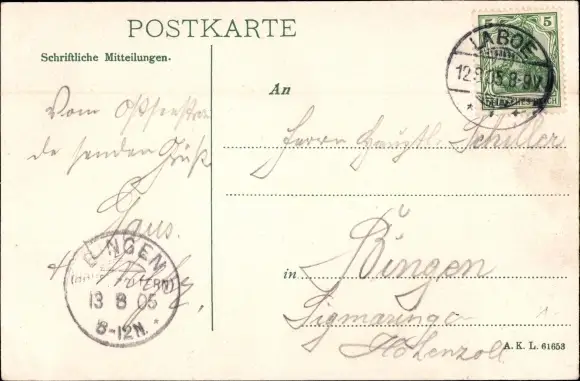 POSTKARTE
Schriftliche Mitteilungen.
Vom Ostseestran
de senden Gruß
Hans.
An
Herrn Schiller
in Bingen
Sigmaringen
Hohenzoll
5
LABOE
12.8.05.8-9V.
DEUTSCHES REICH
BINGEN
(HOHENZOLLERN)
13 8 05
8-12N.
A. K. L. 61653